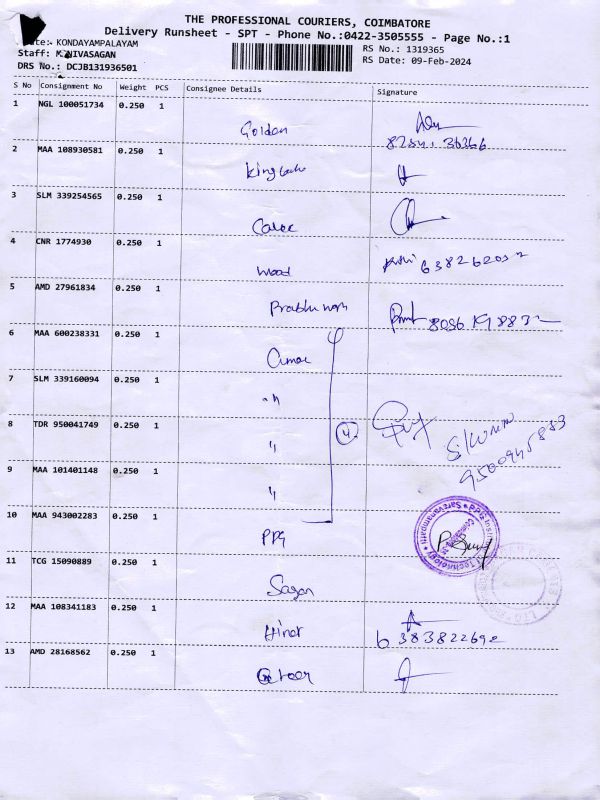 THE PROFESSIONAL COURIERS, COIMBATORE
Delivery Runsheet - SPT - Phone No.:0422-3505555 - Page No.:1
KONDAYAMPALAYAM
RS No.: 1319365
Staff:
RS Date: 09-Feb-2024
DRS No.: DCJB131936501
S No Consignment No Weight PCS Consignee Details Signature
1 NGL 100051734 0.250 1 Golden
2 MAA 108930581 0.250 1
3 SLM 339254565 0.250 1
4 CNR 1774930 0.250 1 wood
5 AMD 27961834 0.250 1
6 MAA 600238331 0.250 1
7 SLM 339160094 0.250 1
8 TDR 950041749 0.250 1 "
4.
9 MAA 101401148 0.250 1 "
9500945883
10 MAA 943002283 0.250 1 PPG
11 TCG 15090889 0.250 1 Sagan
12 MAA 108341183 0.250 1
6383822692
13 AMD 28168562 0.250 1